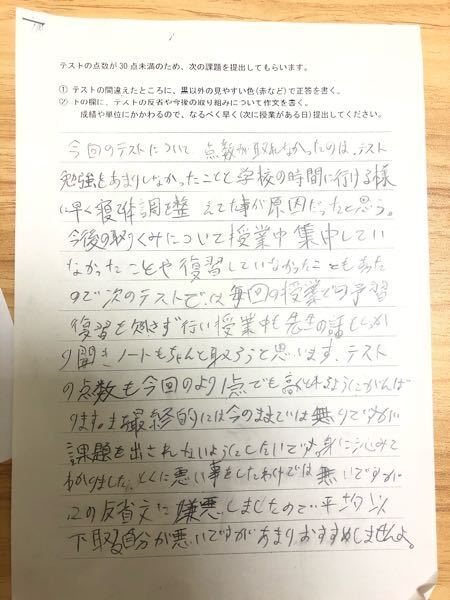 テストの点数が30点未満のため、次の課題を提出してもらいます。
① テストの間違えたところに、黒以外の見やすい色(赤など)で正答を書く。
② 下の欄に、テストの反省や今後の取り組みについて作文を書く。
成績や単位にかかわるので、なるべく早く(次に授業がある日)提出してください。
今回のテストについて 点数が取れなかったのは、テスト
勉強をあまりしなかったことと学校の時間に行ける様
に早く寝体調を整えてた事が原因だったと思う。
今後の取りくみについて授業中集中してい
なかったことや復習していなかったこともあった
ので次のテストでは毎回の授業での予習
復習を欠さず行い授業中も先生の話もしっか
り聞きノートもちゃんと取ろうと思います、テスト
の点数も今回のより1点でも高くとれるようにがんば
ります。ま最終的には今のままでは無りですが
課題を出されないようにしたいです身に沁みて
わかりました、とくに悪い事をしたわけでは無いですが
この反省文に嫌悪しましたので平均以
下取る自分が悪いですがあまりおすすめしませんよ。